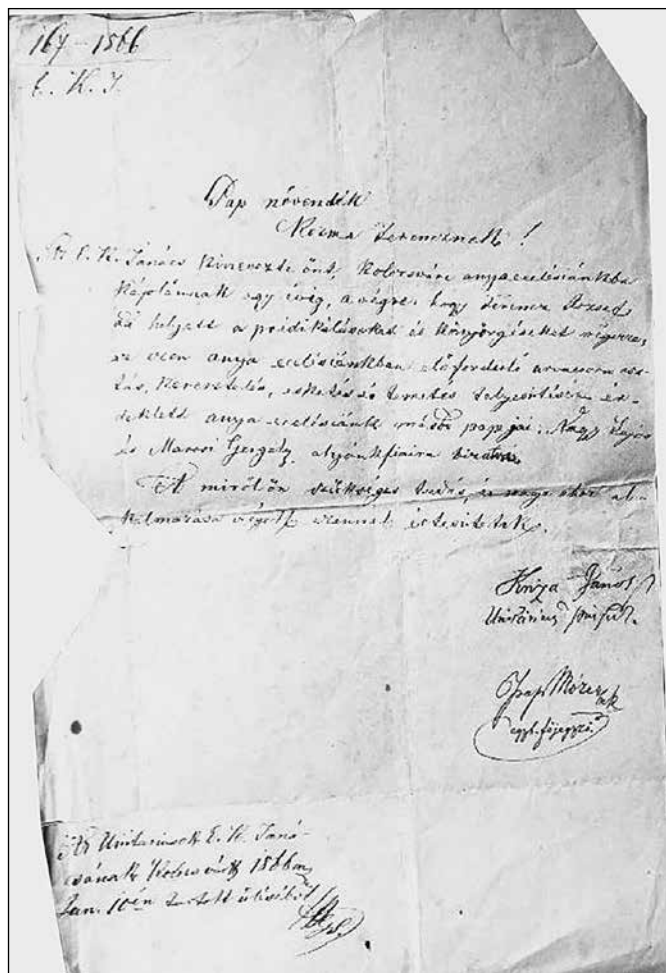 167–1866
E. K. T.
Pap növendék
Kozma Ferencznek!
Az E. K. Tanács kinevezte önt, Kolozsvári anyaecclésiánkba
káplánnak egy évig, a végre, hogy Ferencz József
helyett a prédikálásokat és könyörgéseket végezze,
az ezen anya ecclésiánkban előforduló urvacsora osz-
tás, keresztelés, esketés és temetés teljesitésére ér-
deklett anya ecclésiánk másod papjai: Nagy Lajos
és Marosi Gergely atyánkfiaira bizatván.
A miről ön szükséges tudás, és maga ahoz al-
kalmazása végett ezennel értesittetik.
Kriza János
Unitárius püspök.
Pap Mózes
egyh. főjegyző.
Az Unitariusok E. K. Taná-
csának Kolozsvártt 1866
Jan. 10én tartott üléséből